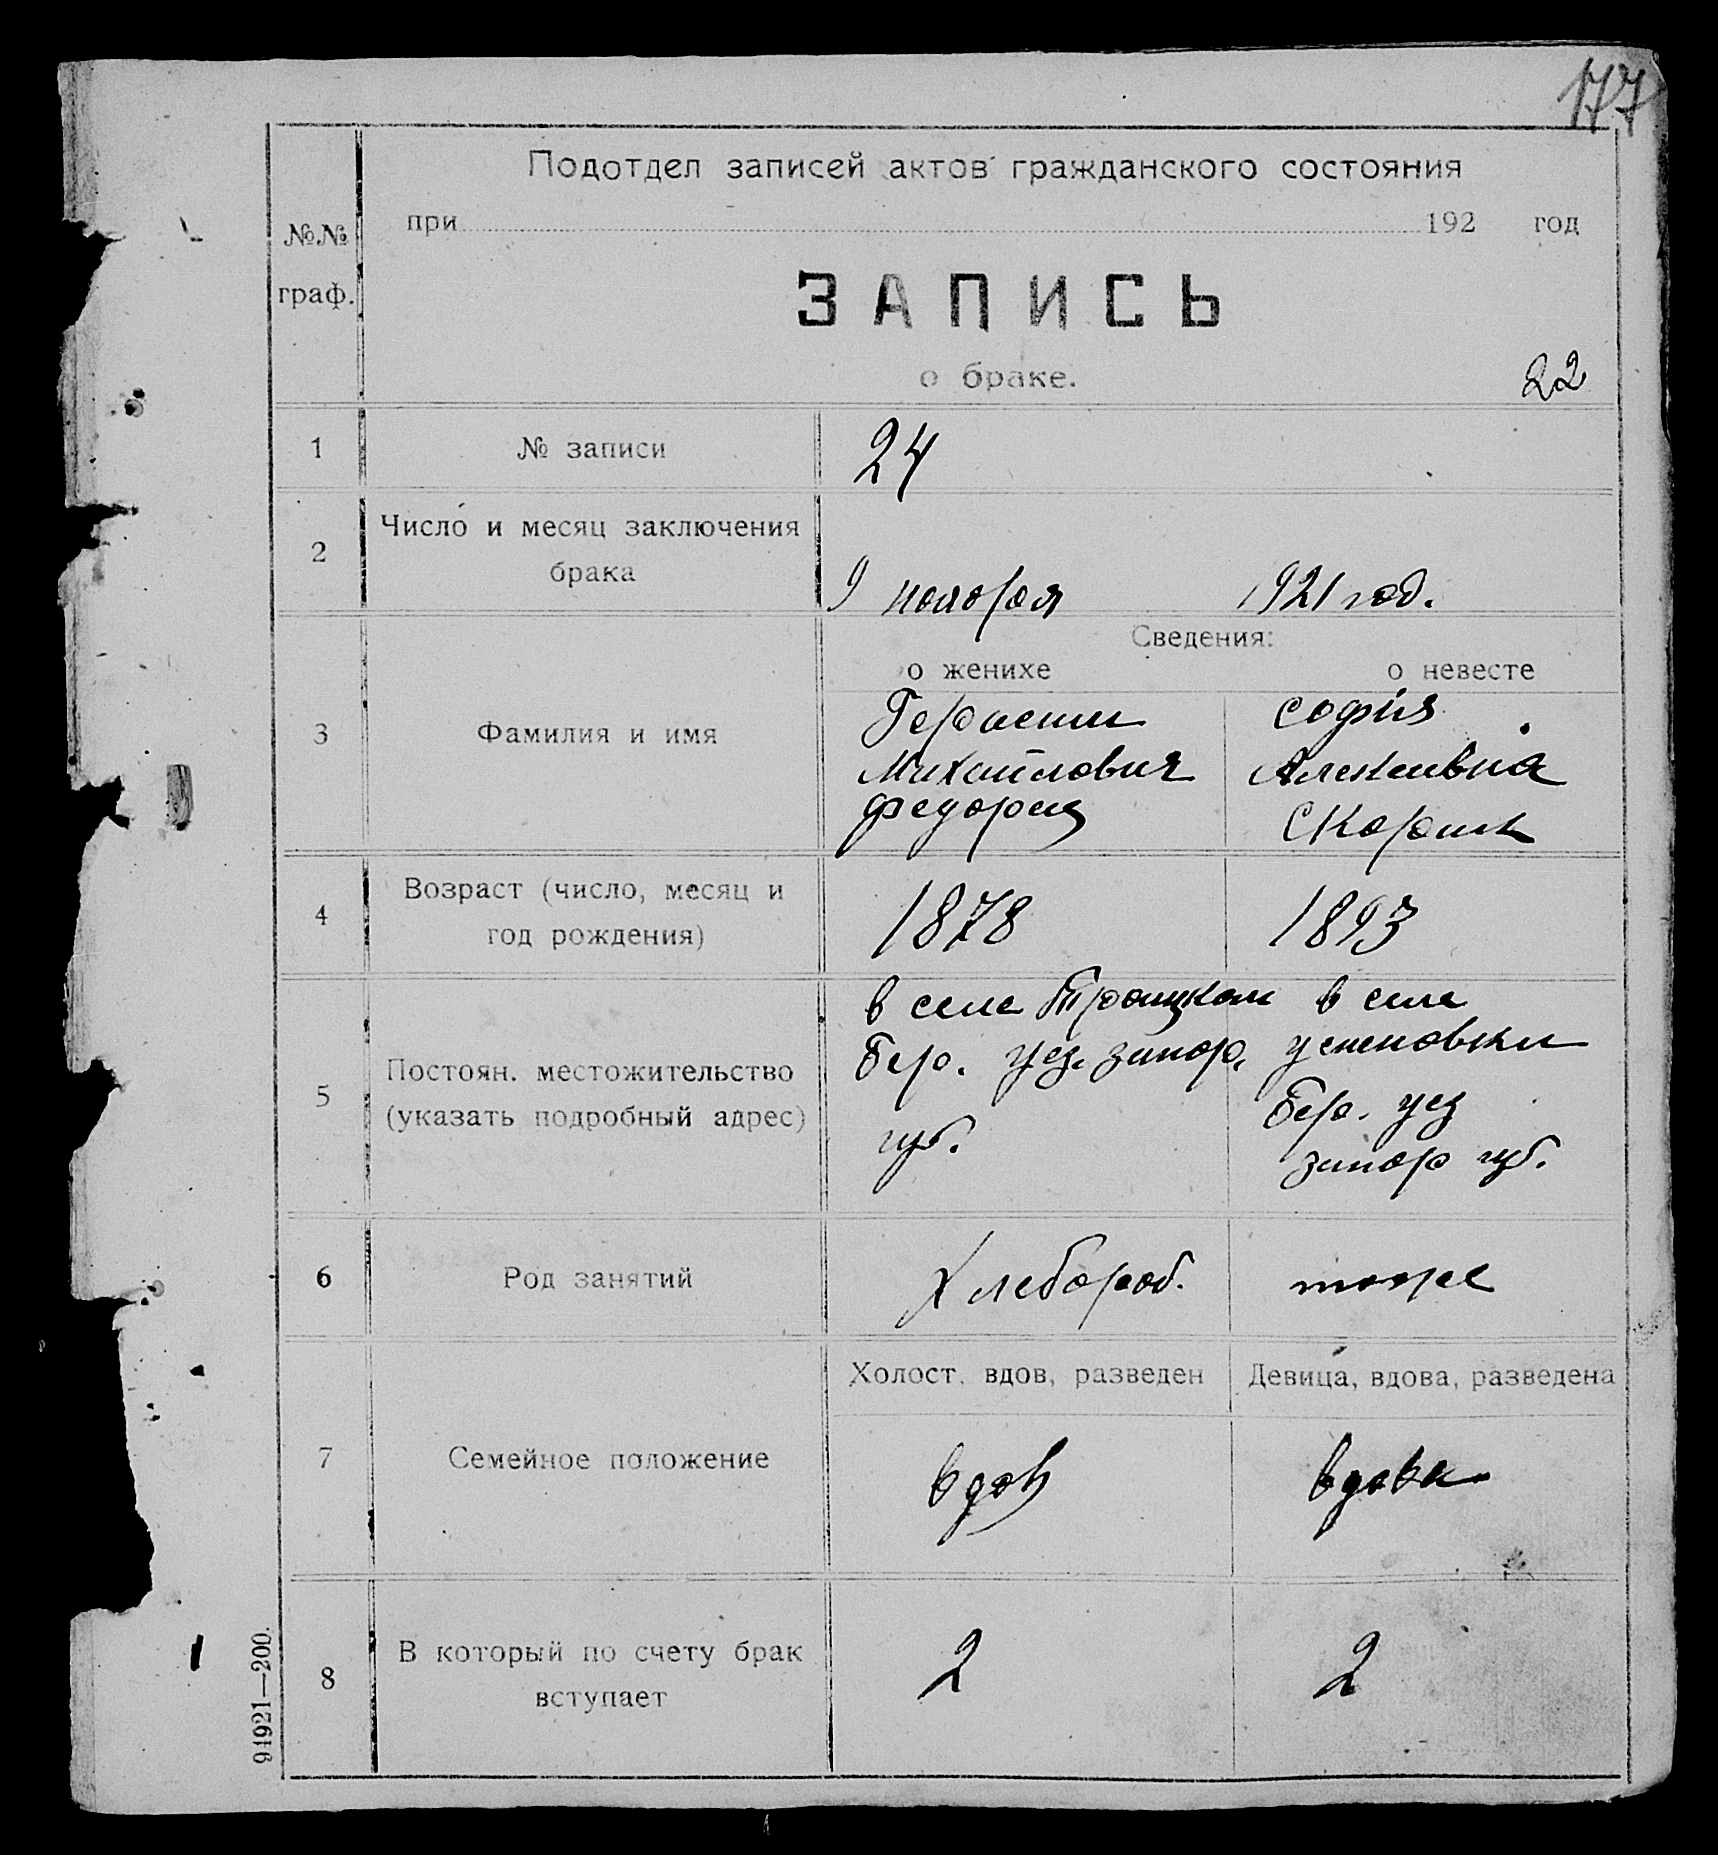 177
Подотдел записей актов гражданского состояния
№№ граф.
при 192 год
ЗАПИСЬ
о браке.
22
1 № записи 24
2 Число и месяц заключения
брака
9 ноября 1921 год.
Сведения:
о женихе о невесте
3 Фамилия и имя
Герасим софія
Михайлович Алексеивна
Федорец Скорик
4 Возраст (число, месяц и
год рождения)
1878 1893
5 Постоян. местожительство
(указать подробный адрес)
в селе Троицком в селе
Бер. уез. запор. успеновки
губ. Бер. уез
запор губ.
6 Род занятий Хлебороб. тоже
Холост, вдов, разведен Девица, вдова, разведена
7 Семейное положение вдов вдова
8 В который по счету брак
вступает
2 2
94921—200.